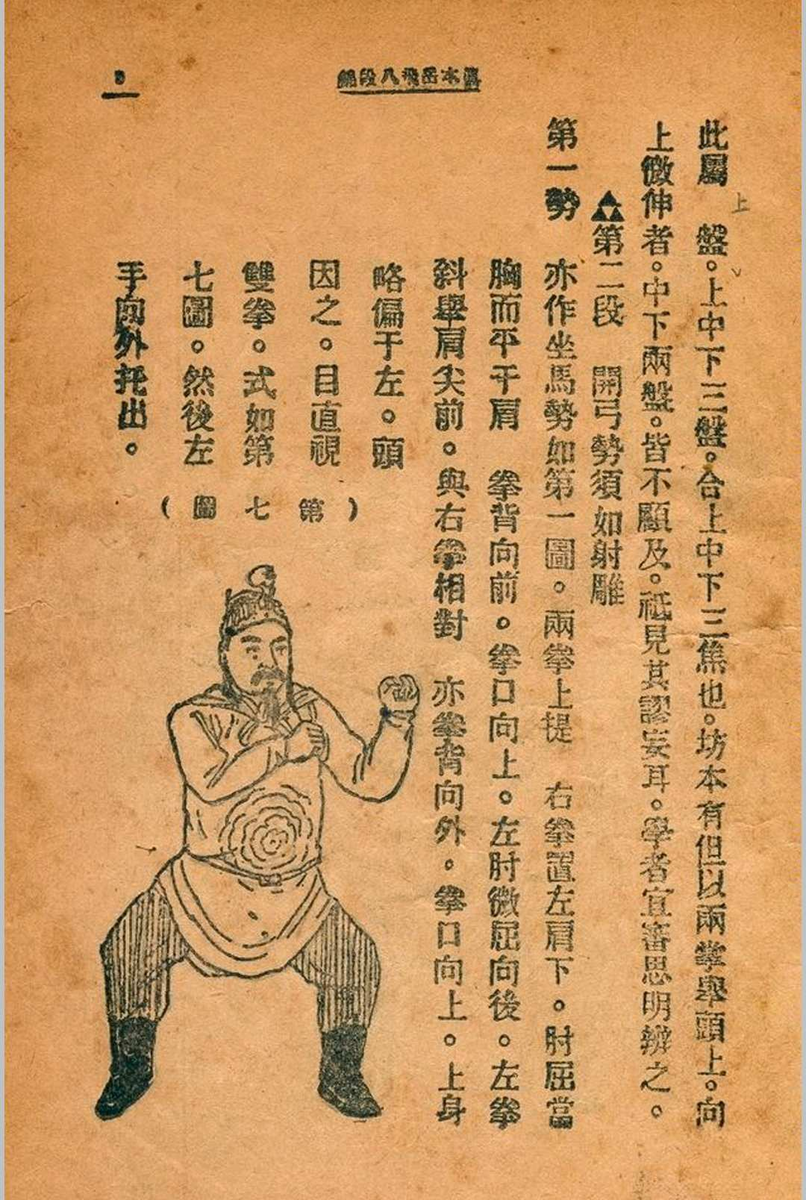 真本岳飛八段錦
9
此屬 盤。上中下三盤。合上中下三焦也。坊本有但以兩拳舉頭上。向
上
上微伸者。中下兩盤。皆不顧及。祗見其謬妄耳。學者宜審思明辨之。
第二段 開弓勢須如射雕
第一勢 亦作坐馬勢如第一圖。兩拳上提 右拳置左肩下。肘屈當
胸而平于肩 拳背向前。拳口向上。左肘微屈向後。左拳
斜舉肩尖前。與右拳相對 亦拳背向外。拳口向上。上身
略偏于左。頭
因之。目直視
雙拳。式如第
七圖。然後左
手向外托出。
(第七圖)